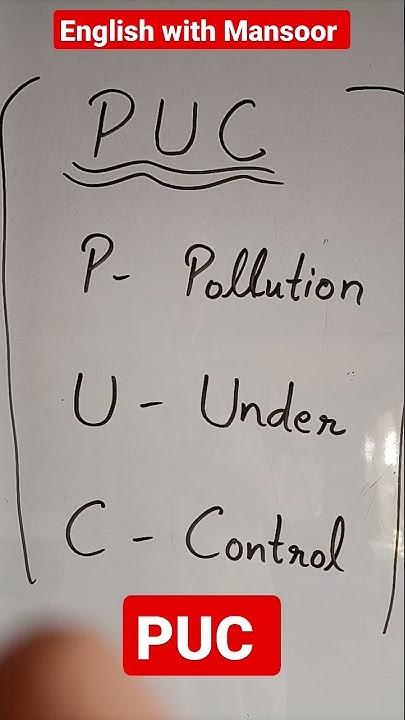 English with Mansoor
PUC
P- Pollution
U - Under
C - Control
PUC